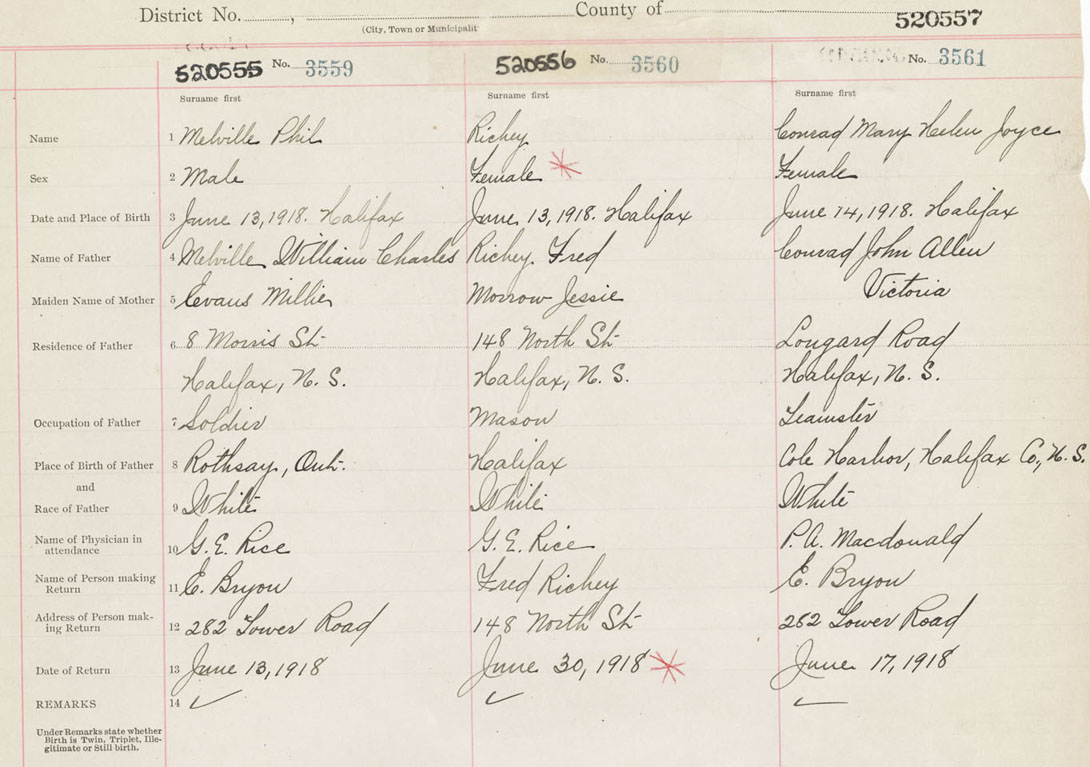 District No. , County of
(City, Town or Municipalit
520555 No. 3559 520556 No. 3560 520557 No. 3561
Surname first Surname first Surname first
Name 1 Melville Phil Richey Conrad Mary Helen Joyce
Sex 2 Male Female Female
Date and Place of Birth 3 June 13, 1918. Halifax June 13, 1918. Halifax June 14, 1918. Halifax
Name of Father 4 Melville William Charles Richey Fred Conrad John Allen
Maiden Name of Mother 5 Evans Millie Morrow Jessie Victoria
Residence of Father 6 8 Morris St. 148 North St. Longard Road
Halifax, N. S. Halifax, N. S. Halifax, N. S.
Occupation of Father 7 Soldier Mason Teamster
Place of Birth of Father 8 Rothsay, Ont. Halifax Cole Harbor, Halifax Co., N. S.
and
Race of Father 9 White White White
Name of Physician in
attendance 10 G. E. Rice G. E. Rice P. A. Macdonald
Name of Person making
Return 11 E. Bryon Fred Richey E. Bryon
Address of Person mak-
ing Return 12 282 Tower Road 148 North St. 282 Tower Road
Date of Return 13 June 13, 1918 June 30, 1918 June 17, 1918
REMARKS 14
Under Remarks state whether
Birth is Twin, Triplet, Ille-
gitimate or Still birth.